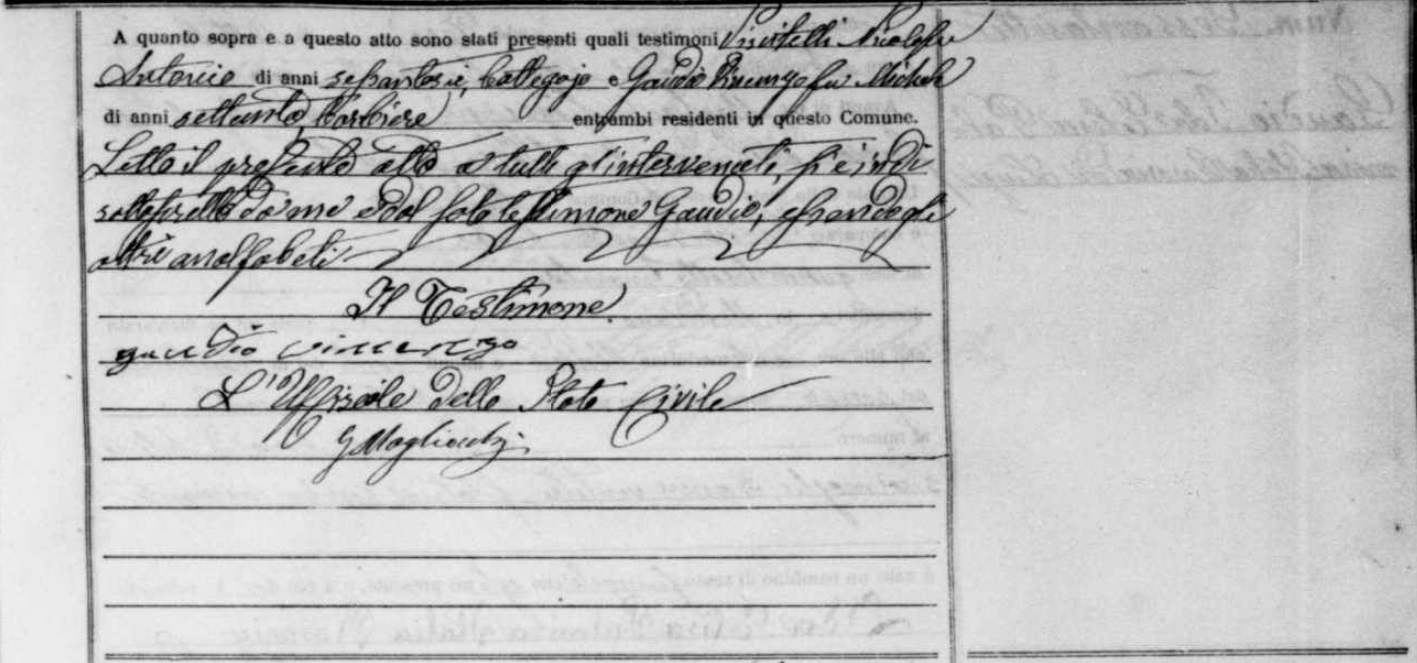 A quanto sopra e a questo atto sono stati presenti quali testimoni Visitelli Nicola fu
Antonio di anni sessantasei, bottegajo e Gaudio Vincenzo fu Michele
di anni settanta, barbiere entrambi residenti in questo Comune.
Letto il presente atto a tutti gl'intervenuti, si è indi
sottoscritto da me e dal solo testimone Gaudio, essendo gli
altri analfabeti
Il Testimone
gaudio vincenzo
L'Uffiziale dello Stato Civile
G Magliocchi